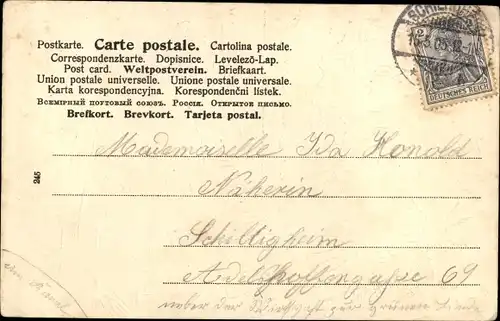 Postkarte. Carte postale. Cartolina postale.
Correspondenzkarte. Dopisnice. Levelező-Lap.
Post card. Weltpostverein. Briefkaart.
Union postale universelle. Unione postale universale.
Karta korespondencyjna. Korespondenční lístek.
Всемірный почтовый союзъ. Россія. Открытое письмо.
Brefkort. Brevkort. Tarjeta postal.
DEUTSCHES REICH
245
Mademoiselle Ida Honold
Näherin
Schiltigheim
Adelshoffengasse 69
neben der Wirtschaft zur grünen Linde